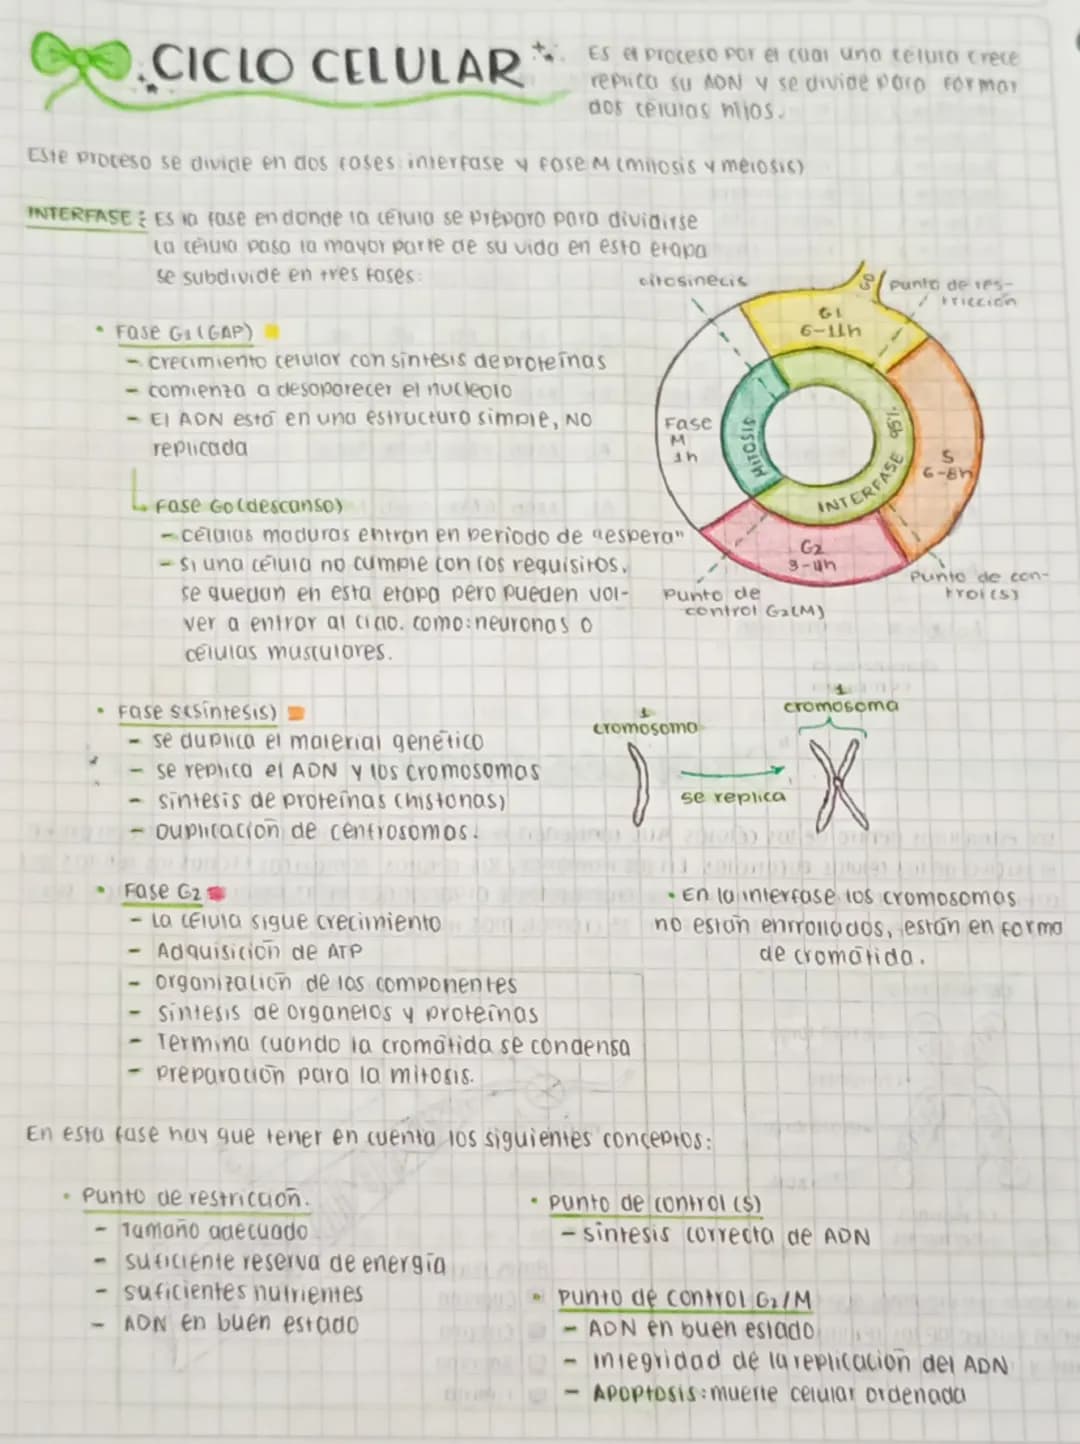 CICLO CELULAR
Es el proceso por el cual una célula crece
replica su ADN y se divide para formar
dos células hijas.
Este proceso se divide en dos fases: interfase y fase M (mitosis y meiosis)
INTERFASE: Es la fase en donde la célula se prepara para dividirse
La célula pasa la mayor parte de su vida en esta etapa
se subdivide en tres fases:
• Fase G1 (GAP)
- crecimiento celular con síntesis de proteínas
- comienza a desaparecer el nucleolo
- El ADN está en una estructura simple, NO
replicada
Fase G0 (descanso)
- células maduras entran en periodo de "espera"
- si una célula no cumple con los requisitos,
se quedan en esta etapa pero pueden vol-
ver a entrar al ciclo. como: neuronas o
células musculares.
citosinecis
G0
Punto de res-
tricción
G1
6-11h
Fase
M
1h
MITOSIS
INTERFASE 95%
S
6-8h
G2
3-4h
Punto de
control G2(M)
Punto de con-
trol (S)
• Fase S (síntesis)
- se duplica el material genético
- se replica el ADN y los cromosomas
- síntesis de proteínas (histonas)
- Duplicación de centrosomas.
1
cromosoma
se replica
1
cromosoma
• Fase G2
- La célula sigue crecimiento
- Adquisición de ATP
- organización de los componentes
- síntesis de organelos y proteínas
- Termina cuando la cromátida se condensa
- preparación para la mitosis.
• En la interfase los cromosomas
no están enrrollados, están en forma
de cromátida.
En esta fase hay que tener en cuenta los siguientes conceptos:
• Punto de restricción.
- Tamaño adecuado
- suficiente reserva de energía
- suficientes nutrientes
- ADN en buen estado
• Punto de control (S)
- síntesis correcta de ADN
• Punto de control G2/M
- ADN en buen estado
- Integridad de la replicación del ADN
- Apoptosis: muerte celular ordenada